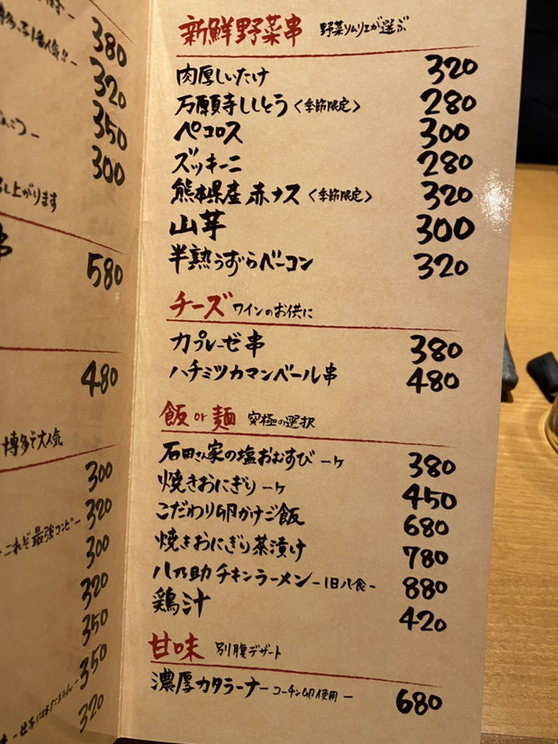 380
320
350
300
し上がります
串
580
480
博多で大人気
300
320
これぞ最強コンビー
300
320
350
350
320
新鮮野菜串 野菜ソムリエが選ぶ
肉厚しいたけ 320
万願寺ししとう〈季節限定〉 280
ペコロス 300
ズッキーニ 280
熊本県産 赤ナス〈季節限定〉 320
山芋 300
半熟うずらベーコン 320
チーズ ワインのお供に
カプレーゼ串 380
ハチミツカマンベール串 480
飯 or 麺 究極の選択
石田さん家の塩おむすび 一ヶ 380
焼きおにぎり 一ヶ 450
こだわり卵かけご飯 680
焼きおにぎり茶漬け 780
八乃助チキンラーメン -1日八食- 880
鶏汁 420
甘味 別腹デザート
濃厚カタラーナ -コーチン卵使用- 680